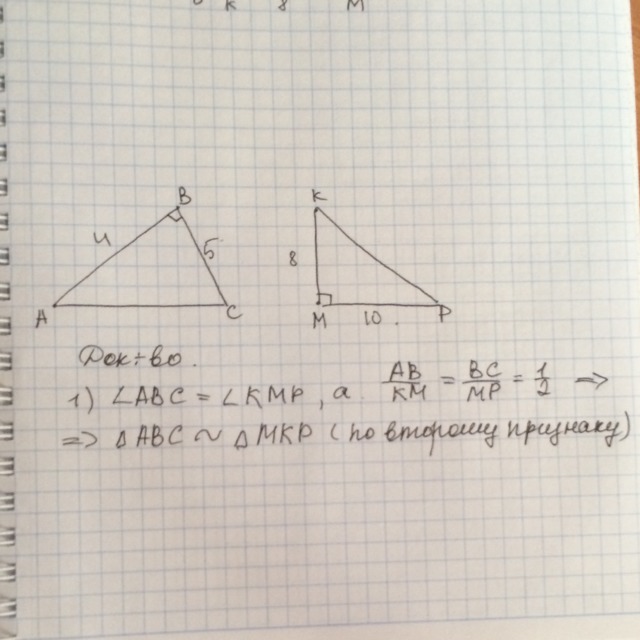 к 8 М
B
K
4
5
8
A
C
M
10
P
Док-во.
1) ∠ABC = ∠KMP, а AB/KM = BC/MP = 1/2 =>
=> ΔABC ~ ΔMKP (по второму признаку)